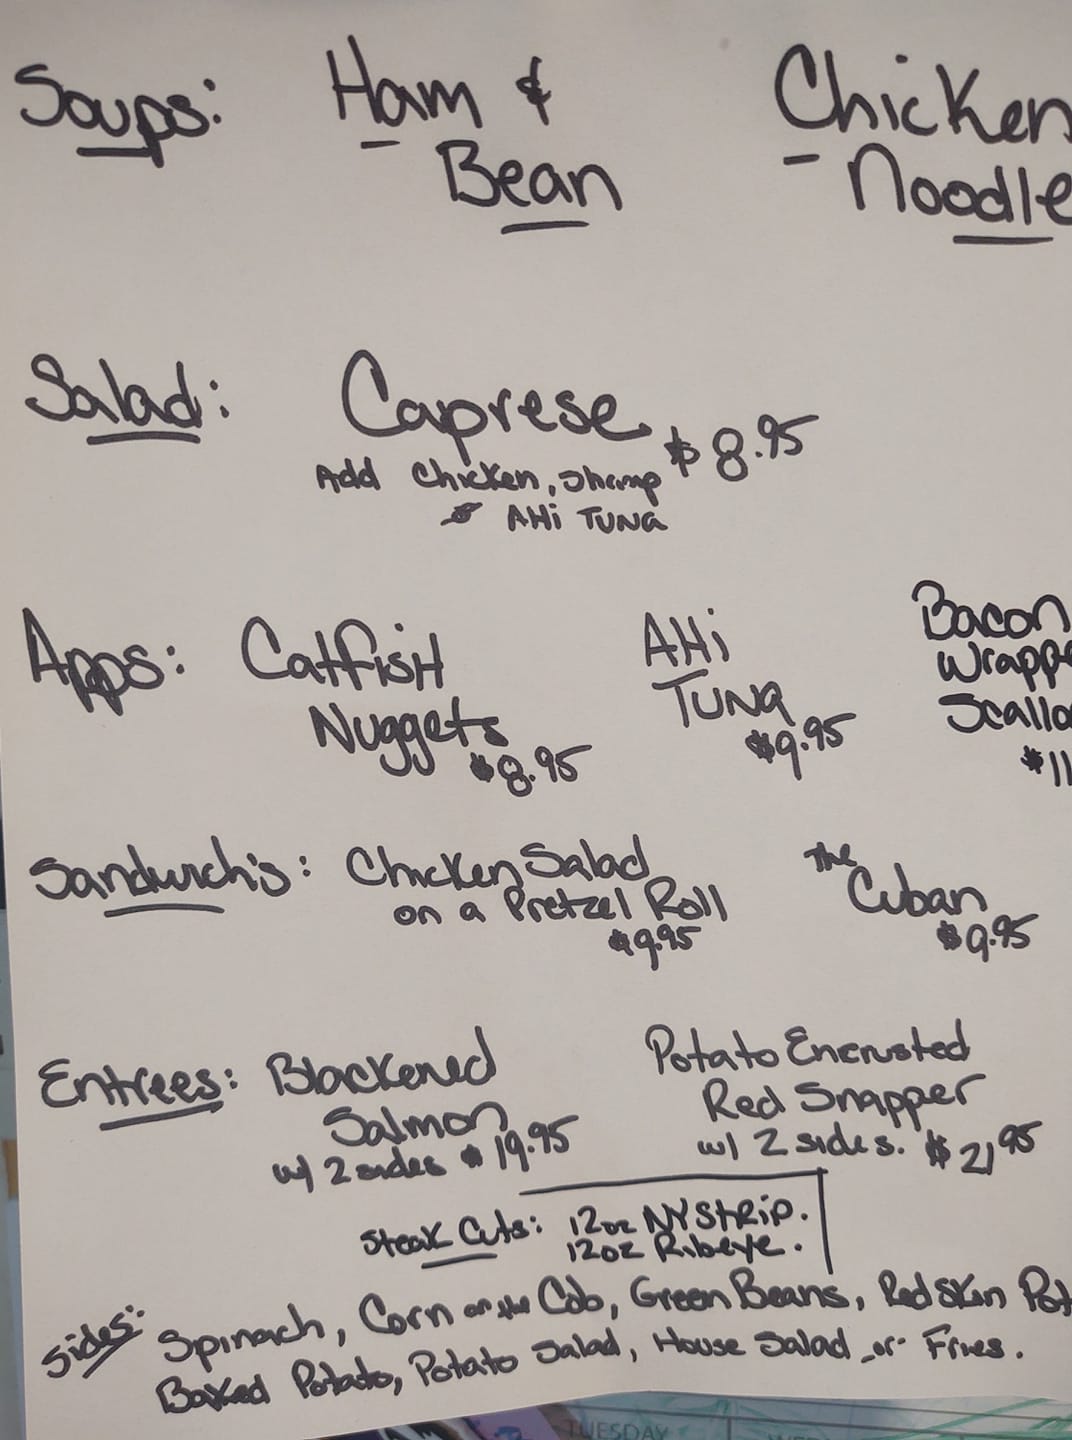 Soups: Ham & Chicken
Bean Noodle
Salad: Caprese $8.95
Add Chicken, Shrimp
AHi TUNA
Apps: CatfisH AHi Bacon
Nuggets TUNA Wrappe
$8.95 $9.95 Scallo
$11
Sandwich's: Chicken Salad The Cuban
on a Pretzel Roll $9.95
$9.95
Entrees: Blackened Potato Encrusted
Salmon Red Snapper
w/ 2 sides $19.95 w/ 2 sides. $21.95
Steak Cuts: 12oz NY StRiP.
12oz Ribeye.
Sides: Spinach, Corn on the Cob, Green Beans, Red Skin Pot
Baked Potato, Potato Salad, House Salad or Fries.
TUESDAY